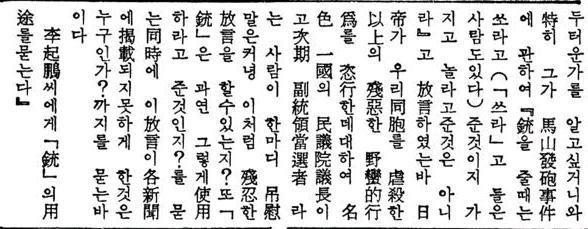 두려운가를 알고싶거니와
特히 그가 馬山發砲事件
에 관하여『銃을 줄때는
쏘라고(「쓰라」고 들은
사람도있다) 준것이지 가
지고 놀라고준것은 아니
라』고 放言하였는바 日
帝가 우리同胞를 虐殺한
以上의 殘惡한 野蠻的行
爲를 恣行한데대하여 名
色 一國의 民議院議長이
고次期 副統領當選者 라
는 사람이 한마디 吊慰
말은커녕 이처럼 殘忍한
放言을 할수있는지? 또「
銃」은 과연 그렇게使用
하라고 준것인지? 를 묻
는同時에 이放言이各新聞
에揭載되지못하게 한것은
누구인가? 까지를 묻는바
이다
李起鵬씨에게「銃」의用
途를묻는다』